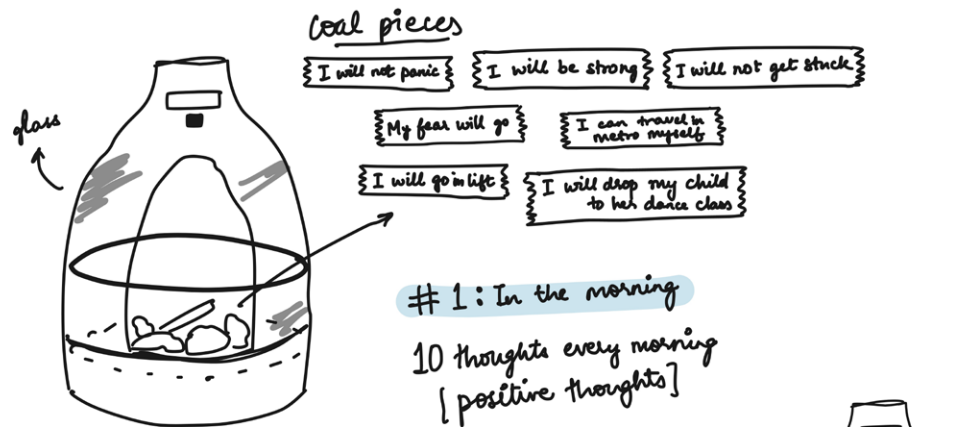 coal pieces
I will not panic
I will be strong
I will not get stuck
glass
My fear will go
I can travel in
metro myself
I will go in lift
I will drop my child
to her dance class
#1: In the morning
10 thoughts every morning
[positive thoughts]